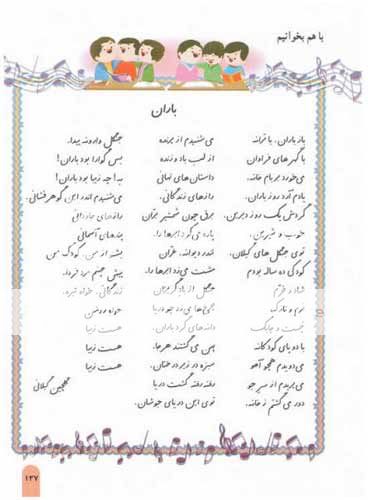 با هم بخوانیم
باران
باز باران، با ترانه
با گهر های فراوان
می خورد بر بام خانه.
یادم آرد روز باران:
گردش یک روز دیرین،
خوب و شیرین،
توی جنگل های گیلان.
کودکی ده ساله بودم
شاد و خرّم
نرم و نازک
چست و چابک
با دو پای کودکانه
می دویدم همچو آهو
می پریدم از سر جو
دور می گشتم ز خانه.
می شنیدم از پرنده
از لب باد وزنده
داستان های نهانی
رازهای زندگانی.
برق چون شمشیر بران
پاره می کرد ابرها را.
تندر دیوانه، غران
مشت می زد ابرها را.
جنگل از باد گریزان
چرخ ها می زد چو دریا
دانه های گرد باران
پهن می گشتند هر جا.
سبزه در زیر درختان،
رفته رفته گشت دریا
توی این دریای جوشان،
جنگل وارونه پیدا.
بس گوارا بود باران!
به! چه زیبا بود باران!
می شنیدم اندر این گوهر فشانی،
رازهای جاودانی
پندهای آسمانی
بشنو از من، کودک من
پیش چشم مرد فردا،
زندگانی، خواه تیره،
خواه روشن
هست زیبا
هست زیبا
هست زیبا
گلچین گیلانی
۱۲۷